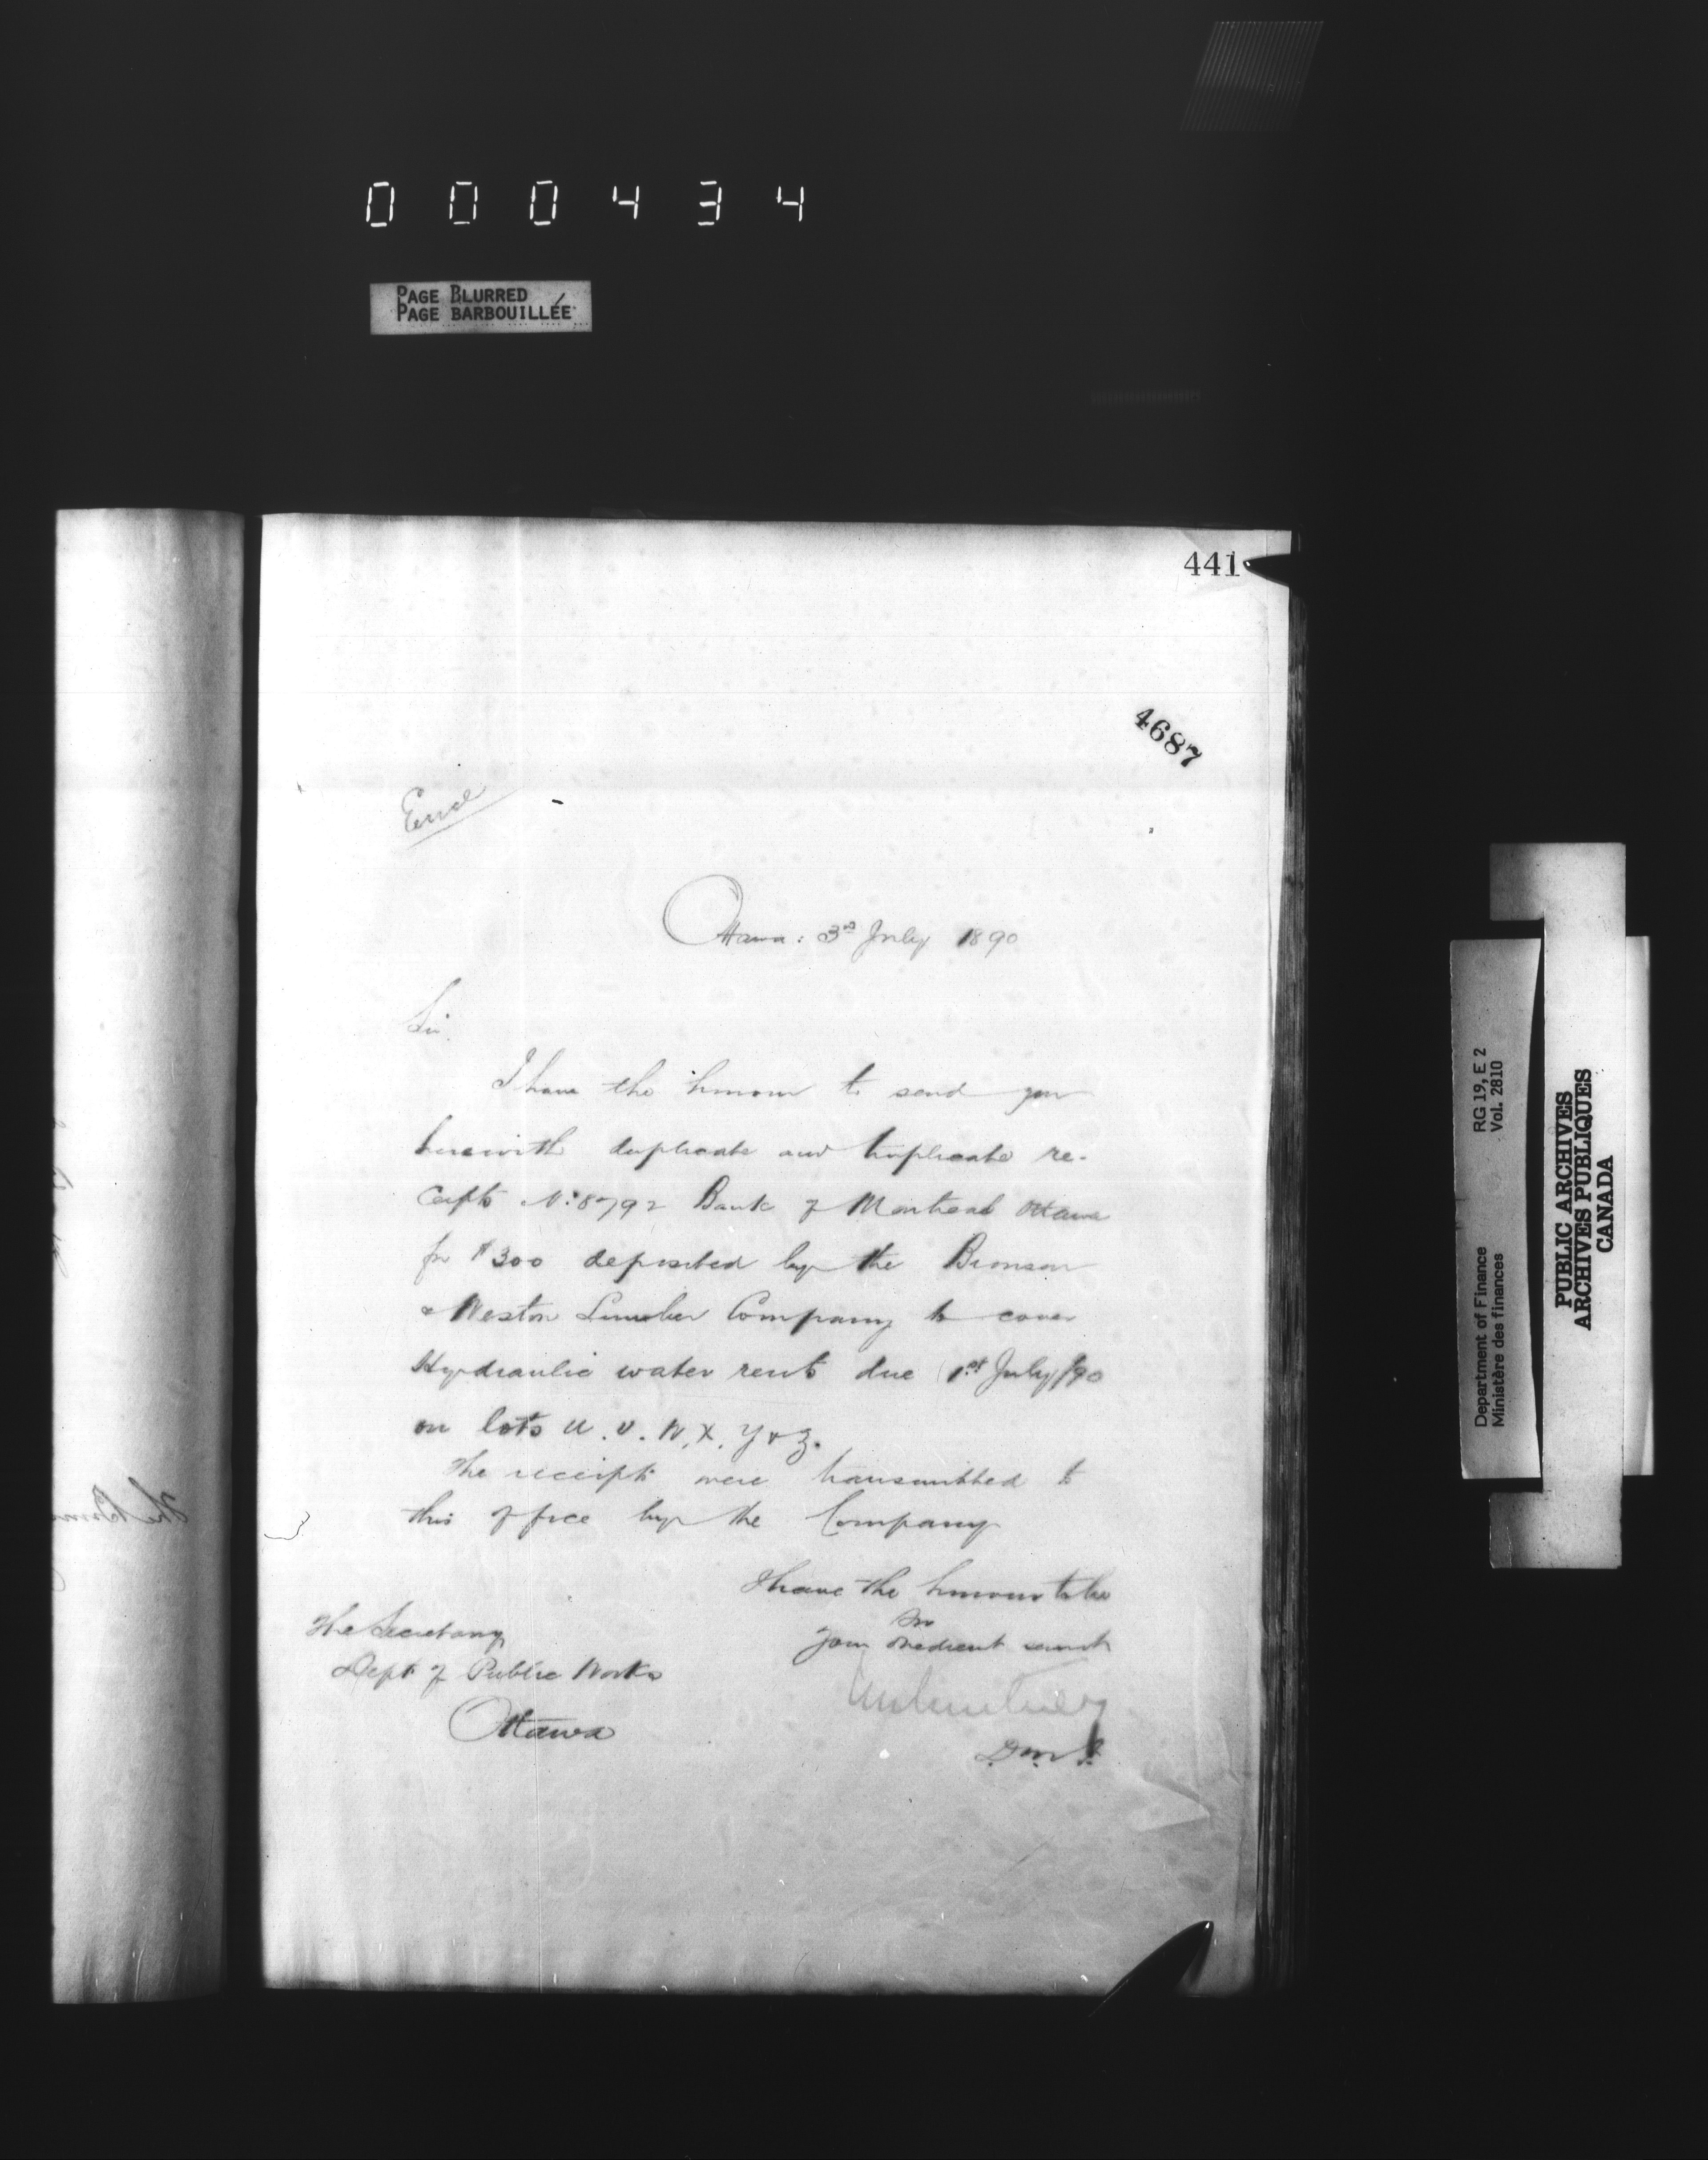 000434
PAGE BLURRED
PAGE BARBOUILLÉE
441
4687
Encl
Ottawa: 3rd July 1890
Sir.
I have the honour to send you
herewith duplicate and triplicate re-
ceipts No: 8792 Bank of Montreal Ottawa
for $300 deposited by the Bronson
& Weston Lumber Company to cover
Hydraulic water rents due 1st July/90
on lots U. V. W, X, Y & Z.
The receipts were transmitted to
this office by the Company
I have the honour to be
Sir
Your obedient servant
D.M.F.
The Secretary
Dept of Public Works
Ottawa
Department of Finance
Ministère des finances
RG 19, E 2
Vol. 2810
PUBLIC ARCHIVES
ARCHIVES PUBLIQUES
CANADA